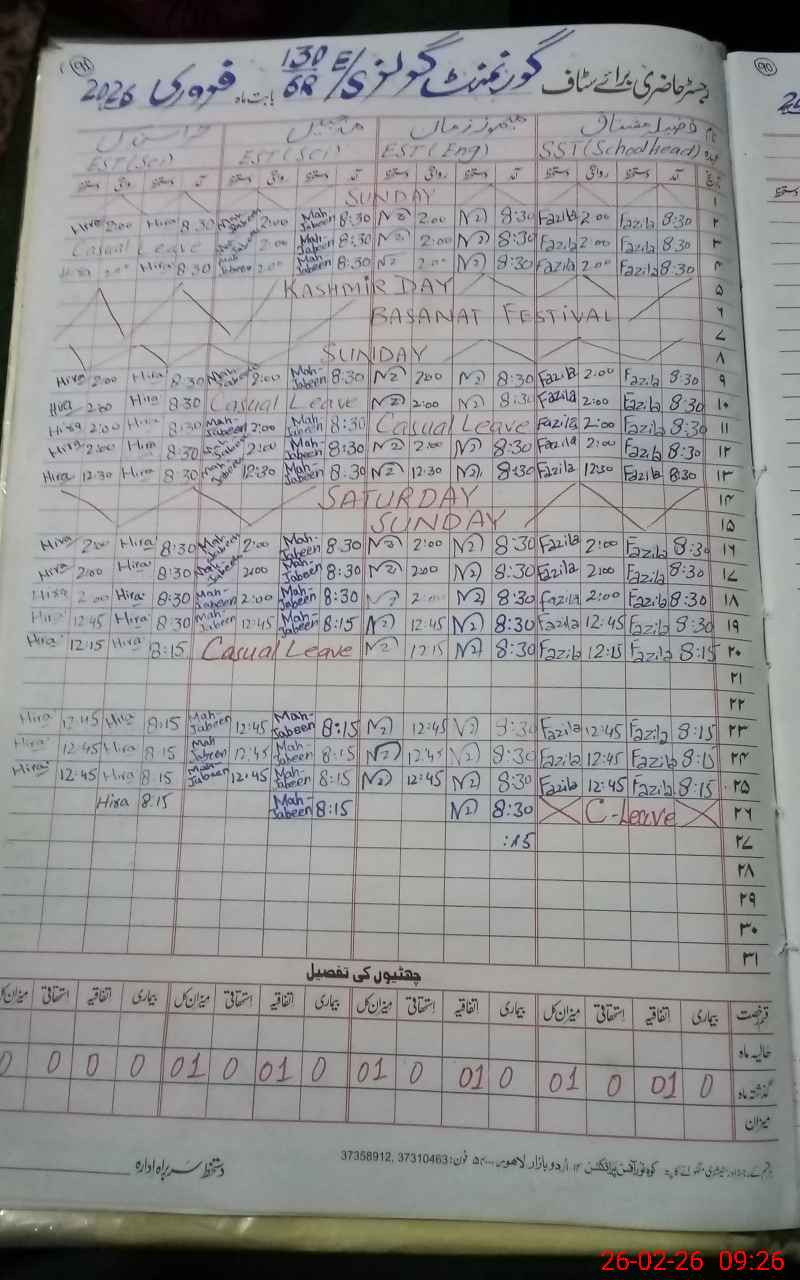 ۹۱
رجسٹر حاضری برائے سٹاف گورنمنٹ گرلز E/S 130/6R بابت ماہ فروری 2026
SST (School head) EST (Eng) EST (Sci) EST (Sci)
۱ SUNDAY
۲ 8:30 Fazila 2:00 Fazila 8:30 2:00 8:30 Mah-Jabeen 2:00 Mah-Jabeen 8:30 Hira 2:00 Hira
۳ 8:30 Fazila 2:00 Fazila 8:30 2:00 8:30 Mah-Jabeen 2:00 Mah-Jabeen Casual Leave
۴ 8:30 Fazila 2:00 Fazila 8:30 2:00 8:30 Mah-Jabeen 2:00 Mah-Jabeen 8:30 Hira 2:00 Hira
۵ KASHMIR DAY
۶ BASANAT FESTIVAL
۷
۸ SUNDAY
۹ 8:30 Fazila 2:00 Fazila 8:30 2:00 8:30 Mah-Jabeen 2:00 Mah-Jabeen 8:30 Hira 2:00 Hira
۱۰ 8:30 Fazila 2:00 Fazila 8:30 2:00 Casual Leave 8:30 Hira 2:00 Hira
۱۱ 8:30 Fazila 2:00 Fazila Casual Leave 8:30 Mah-Jabeen 2:00 Mah-Jabeen 8:30 Hira 2:00 Hira
۱۲ 8:30 Fazila 2:00 Fazila 8:30 2:00 8:30 Mah-Jabeen 2:00 Mah-Jabeen 8:30 Hira 2:00 Hira
۱۳ 8:30 Fazila 12:30 Fazila 8:30 12:30 8:30 Mah-Jabeen 12:30 Mah-Jabeen 8:30 Hira 12:30 Hira
۱۴ SATURDAY
۱۵ SUNDAY
۱۶ 8:30 Fazila 2:00 Fazila 8:30 2:00 8:30 Mah-Jabeen 2:00 Mah-Jabeen 8:30 Hira 2:00 Hira
۱۷ 8:30 Fazila 2:00 Fazila 8:30 2:00 8:30 Mah-Jabeen 2:00 Mah-Jabeen 8:30 Hira 2:00 Hira
۱۸ 8:30 Fazila 2:00 Fazila 8:30 2:00 8:30 Mah-Jabeen 2:00 Mah-Jabeen 8:30 Hira 2:00 Hira
۱۹ 8:30 Fazila 12:45 Fazila 8:30 12:45 8:15 Mah-Jabeen 12:45 Mah-Jabeen 8:30 Hira 12:45 Hira
۲۰ 8:15 Fazila 12:15 Fazila 8:30 12:15 Casual Leave 8:15 Hira 12:15 Hira
۲۱
۲۲
۲۳ 8:15 Fazila 12:45 Fazila 8:30 12:45 8:15 Mah-Jabeen 12:45 Mah-Jabeen 8:15 Hira 12:45 Hira
۲۴ 8:15 Fazila 12:45 Fazila 8:30 12:45 8:15 Mah-Jabeen 12:45 Mah-Jabeen 8:15 Hira 12:45 Hira
۲۵ 8:15 Fazila 12:45 Fazila 8:30 12:45 8:15 Mah-Jabeen 12:45 Mah-Jabeen 8:15 Hira 12:45 Hira
۲۶ C-Leave 8:30 8:15 Mah-Jabeen 8:15 Hira
۲۷ :15
۲۸
۲۹
۳۰
۳۱
چھٹیوں کی تفصیل
قسم رخصت بیماری اتفاقیہ استحقاقی میزان کل بیماری اتفاقیہ استحقاقی میزان کل بیماری اتفاقیہ استحقاقی میزان کل بیماری اتفاقیہ استحقاقی میزان کل
حالیہ ماہ
گذشتہ ماہ 0 01 0 01 0 01 0 01 0 01 0 01 0 0 0 0
میزان
اردو بازار لاہور فون: 37310463, 37358912
دستخط سربراہ ادارہ
۹۰
26-02-26 09:26